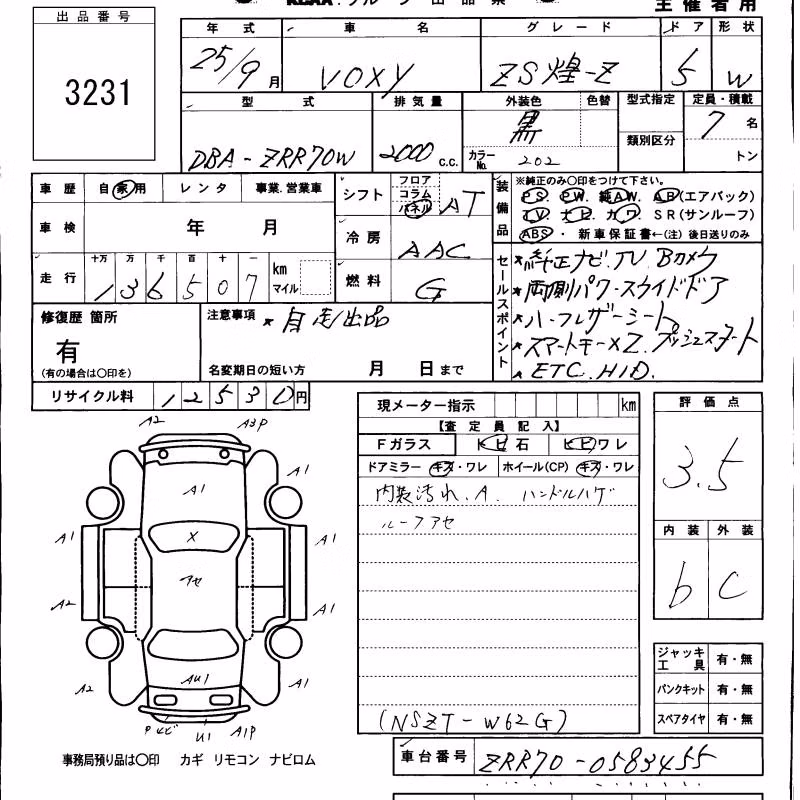 主催者用
出品番号
3231
年式 車名 グレード ドア 形状
25/9月 VOXY ZS煌-Z 5 W
型式 排気量 外装色 色替 型式指定 定員・積載
DBA-ZRR70W 2000 c.c. 黒 カラーNo. 202 類別区分 7名 トン
車歴 自家用 レンタ 事業.営業車
シフト フロア コラム パネル AT
車検 年 月
冷房 AAC
走行 十万 万 千 百 十 一
136507 km マイル
燃料 G
装備品 ※純正のみ〇印をつけて下さい。
PS. PW. 純AW. AB(エアバック)
TV. ナビ. カワ. SR(サンルーフ)
ABS・ 新車保証書←(注)後日送りのみ
セールスポイント
*純正ナビ.TV.Bカメラ
*両側パワースライドドア
*ハーフレザーシート
*スマートキー×2.プッシュスタート
*ETC.HID.
修復歴 箇所
有
(有の場合は〇印を)
注意事項 *自走出品
名変期日の短い方 月 日まで
リサイクル料 12530円
現メーター指示 km
【査定員記入】
Fガラス トビ石 ヒビワレ
ドアミラー キズ・ワレ ホイール(CP) キズ・ワレ
内装汚れ.A. ハンドルハゲ
ルーフアセ
(NSZT-W62G)
評価点
3.5
内装 外装
b C
ジャッキ工具 有・無
パンクキット 有・無
スペアタイヤ 有・無
A2 A3P
A1 A1
A1 X A1
アセ
A2 A1
A2 AU1 A1
U1 A1P
事務局預り品は〇印 カギ リモコン ナビロム
車台番号 ZRR70-0583455